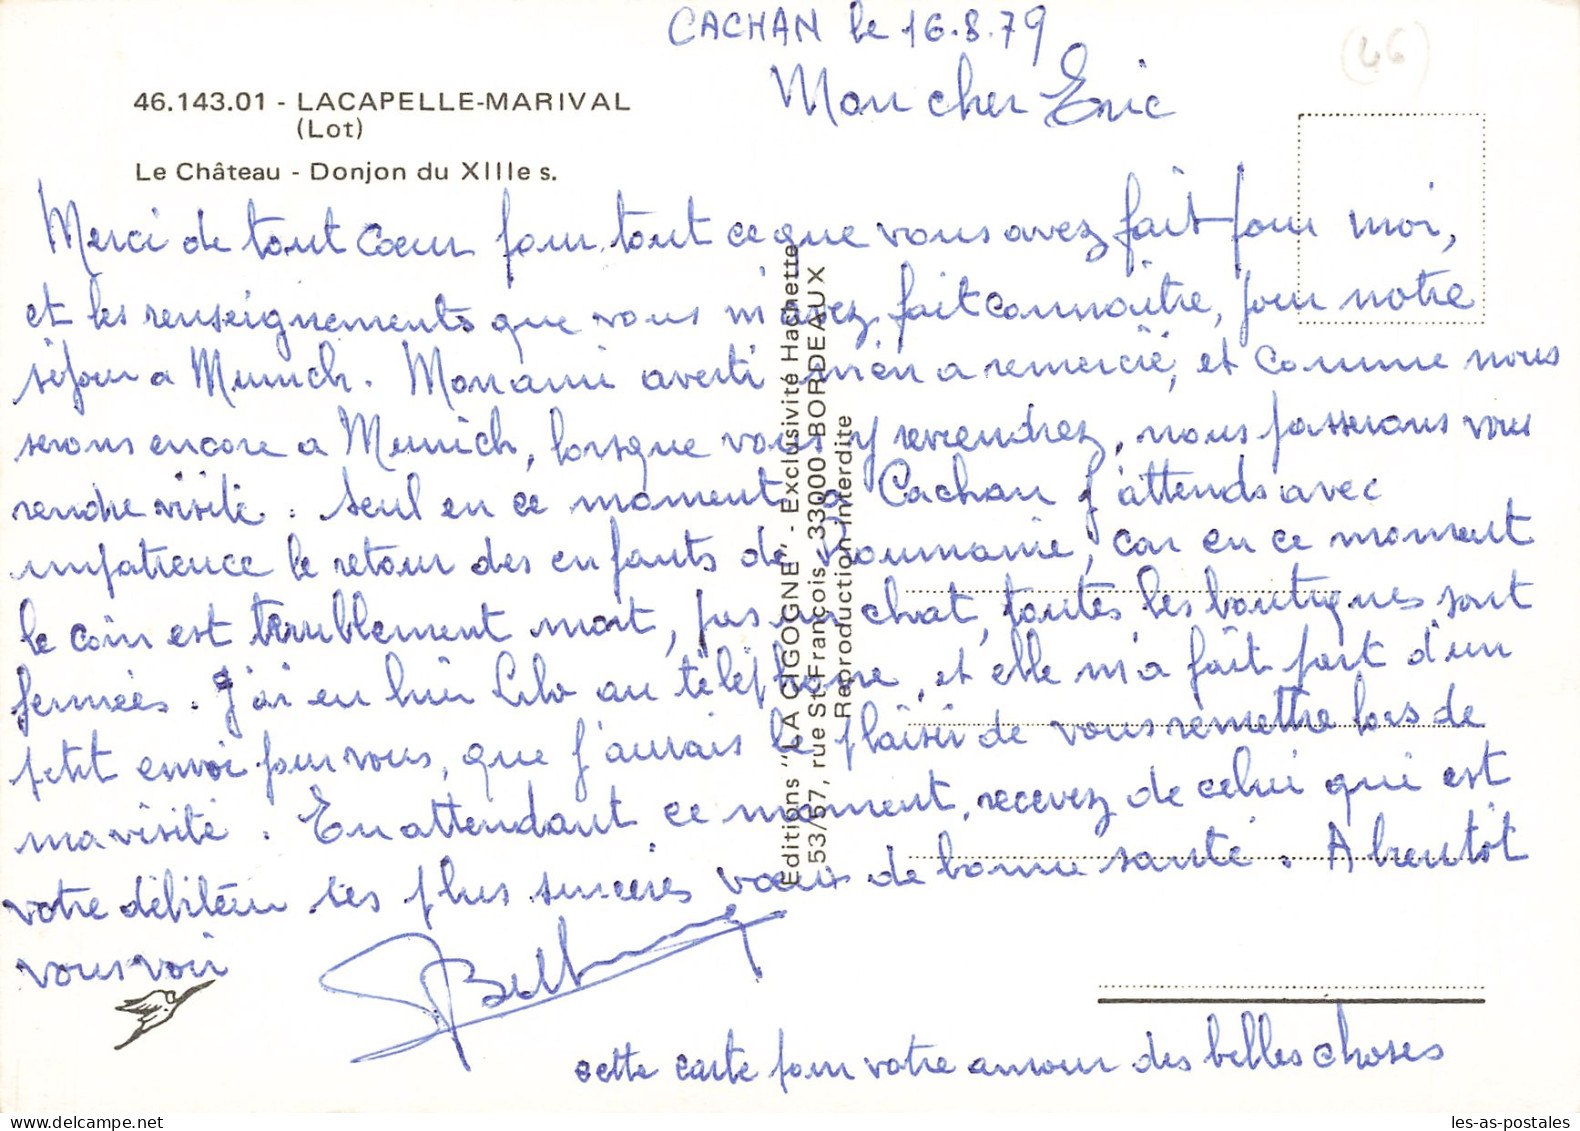 CACHAN le 16.8.79
(46)
Mon cher Eric
46.143.01 - LACAPELLE-MARIVAL
(Lot)
Le Château - Donjon du XIIIe s.
Merci de tout coeur pour tout ce que vous avez fait pour moi,
et les renseignements que vous m'avez fait connaître, pour notre
séjour a Munich. Mon ami averti m'en a remercié, et comme nous
serons encore a Munich, lorsque vous y reviendrez, nous passerons vous
rendre visite. Seul en ce moment a Cachan j'attends avec
impatience le retour des enfants de Roumanie, car en ce moment
le coin est terriblement mort, pas un chat, toutes les boutiques sont
fermées. J'ai eu hier Lilo au téléphone, et elle m'a fait part d'un
petit envoi pour vous, que j'aurais le plaisir de vous remettre lors de
ma visite. En attendant ce moment, recevez de celui qui est
votre débiteur ses plus sincères voeux de bonne santé. A bientôt
vous voir
cette carte pour votre amour des belles choses
Editions "LA CIGOGNE" - Exclusivité Hachette
53/57, rue St-François - 33000 BORDEAUX
Reproduction interdite
les-as-postales